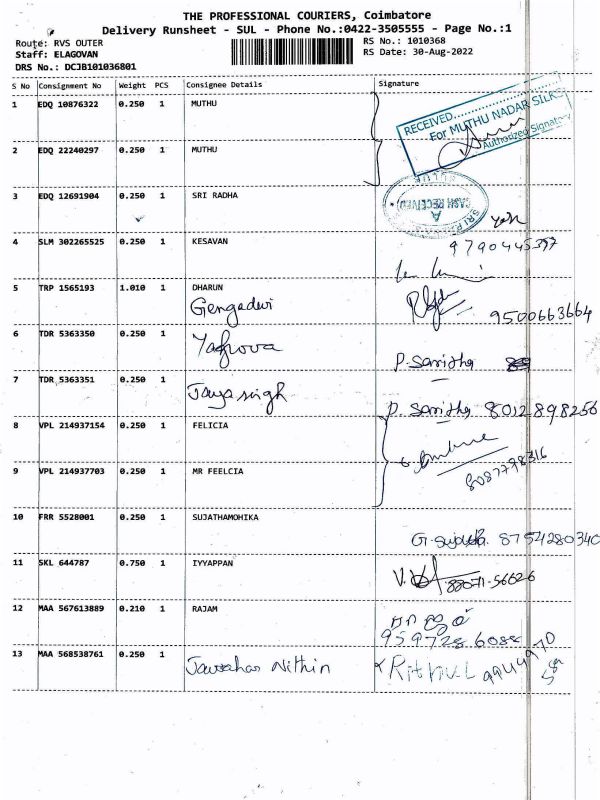 THE PROFESSIONAL COURIERS, Coimbatore
Delivery Runsheet - SUL - Phone No.:0422-3505555 - Page No.:1
Route: RVS OUTER
RS No.: 1010368
Staff: ELAGOVAN
RS Date: 30-Aug-2022
DRS No.: DCJB101036801
S No Consignment No Weight PCS Consignee Details Signature
1 EDQ 10876322 0.250 1 MUTHU
RECEIVED......
For MUTHU NADAR SILKS
Authorized Signatory
2 EDQ 22240297 0.250 1 MUTHU
3 EDQ 12691904 0.250 1 SRI RADHA
CASH RECEIVED
A
4 SLM 302265525 0.250 1 KESAVAN
9790445397
5 TRP 1565193 1.010 1 DHARUN
Gengadevi
9500663664
6 TDR 5363350 0.250 1
P. Saritha
7 TDR 5363351 0.250 1 Jayasingh
P. Saritha 8012898256
8 VPL 214937154 0.250 1 FELICIA
9 VPL 214937703 0.250 1 MR FEELCIA
8087798316
10 FRR 5528001 0.250 1 SUJATHAMOHIKA
G. Sujatha 8754280340
11 SKL 644787 0.750 1 IYYAPPAN
88071-56626
12 MAA 567613889 0.210 1 RAJAM
9597286088
13 MAA 568538761 0.250 1 Jawahar Nithin
Rithul